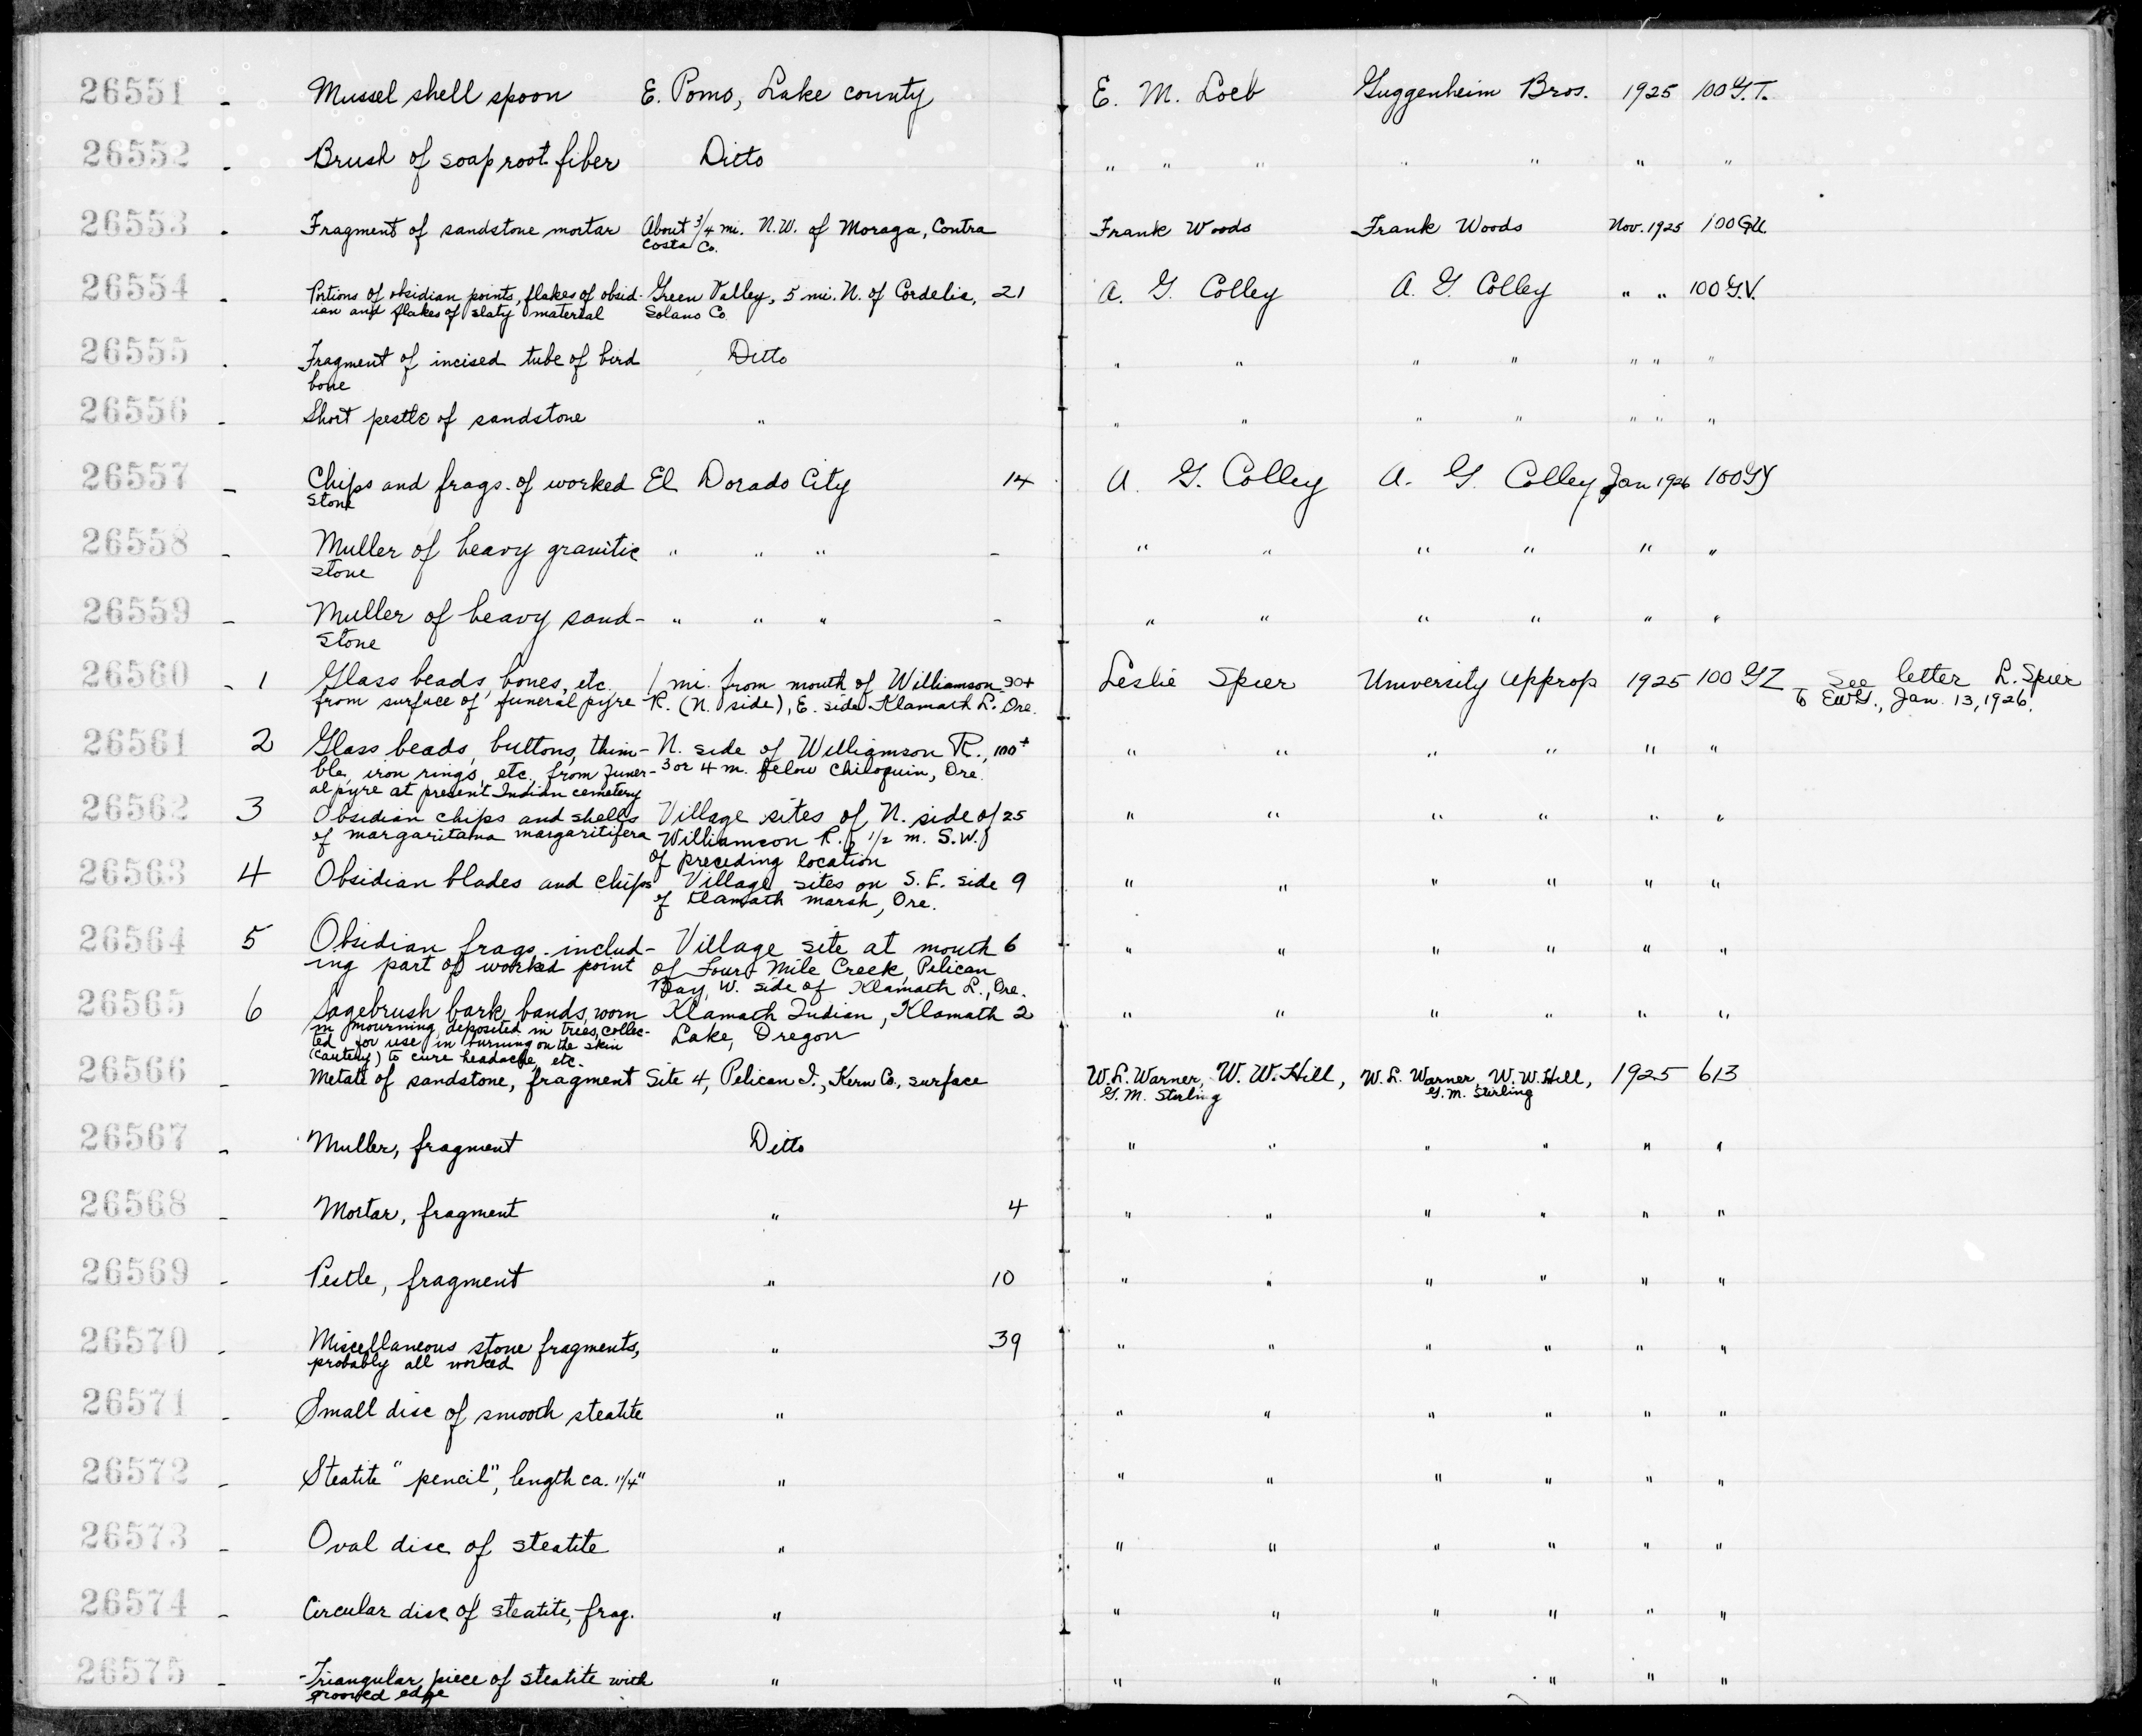 26551 - Mussel shell spoon E. Pomo, Lake county E. M. Loeb Guggenheim Bros. 1925 100 G.T.
26552 - Brush of soap root fiber Ditto " " " " " " "
26553 - Fragment of sandstone mortar About 3/4 mi. N.W. of Moraga, Contra Frank Woods Frank Woods Nov. 1925 100 GU.
Costa Co.
26554 - Portions of obsidian points, flakes of obsid- Green Valley, 5 mi. N. of Cordelia, 21 A. G. Colley A. G. Colley " " 100 G.V.
ian and flakes of slaty material Solano Co.
26555 - Fragment of incised tube of bird Ditto " " " " " " "
bone
26556 - Short pestle of sandstone " " " " " " " "
26557 - Chips and frags. of worked El Dorado City 14 A. G. Colley A. G. Colley Jan 1926 100 GY
stone
26558 - Muller of heavy granitic " " " - " " " " " "
stone
26559 - Muller of heavy sand- " " " - " " " " " "
stone
26560 - 1 Glass beads, bones, etc. 1 mi. from mouth of Williamson 90+ Leslie Spier University Approp 1925 100 GZ See letter L. Spier
from surface of funeral pyre R. (N. side), E. side Klamath L. Ore. to EWG., Jan. 13, 1926.
26561 2 Glass beads, buttons, thim- N. side of Williamson R., 100+ " " " " " "
ble, iron rings, etc., from funer- 3 or 4 m. below Chiloquin, Ore.
al pyre at present Indian cemetery
26562 3 Obsidian chips and shells Village sites of N. side of 25 " " " " " "
of margaritana margaritifera Williamson R., 1/2 m. S.W.
of preceding location
26563 4 Obsidian blades and chips Village sites on S.E. side 9 " " " " " "
of Klamath marsh, Ore.
26564 5 Obsidian frags. includ- Village site at mouth 6 " " " " " "
ing part of worked point of Four Mile Creek, Pelican
Bay, W. side of Klamath L., Ore.
26565 6 Sagebrush bark bands, worn Klamath Indian, Klamath 2 " " " " " "
in mourning, deposited in trees, collec- Lake, Oregon
ted for use in burning on the skin
(cautery) to cure headache, etc.
26566 - Metate of sandstone, fragment Site 4, Pelican I., Kern Co., surface W. L. Warner, W. W. Hill, W. L. Warner, W. W. Hill, 1925 613
G. M. Stirling G. M. Stirling
26567 - Muller, fragment Ditto " " " " " "
26568 - Mortar, fragment " 4 " " " " " "
26569 - Pestle, fragment " 10 " " " " " "
26570 - Miscellaneous stone fragments, " 39 " " " " " "
probably all worked
26571 - Small disc of smooth steatite " " " " " " "
26572 - Steatite "pencil", length ca. 1 1/4" " " " " " " "
26573 - Oval disc of steatite " " " " " " "
26574 - Circular disc of steatite, frag. " " " " " " "
26575 - Triangular piece of steatite with " " " " " " "
grooved edge